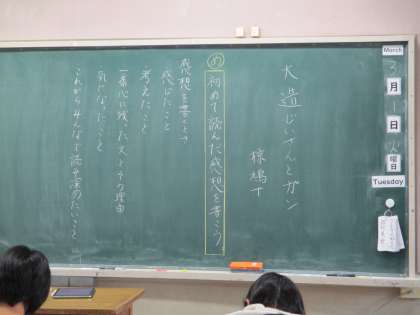 大造じいさんとガン
椋鳩十
め 初めて読んだ感想を書こう
感想を書くとき
感じたこと
考えたこと
一番心に残った文とその理由
気になったこと
これからみんなで読み深めたいこと
March
月
1日
火曜日
Tuesday